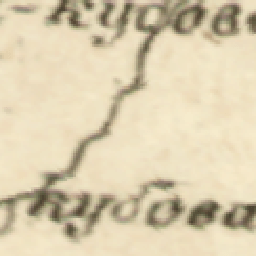 -кубов
кубова